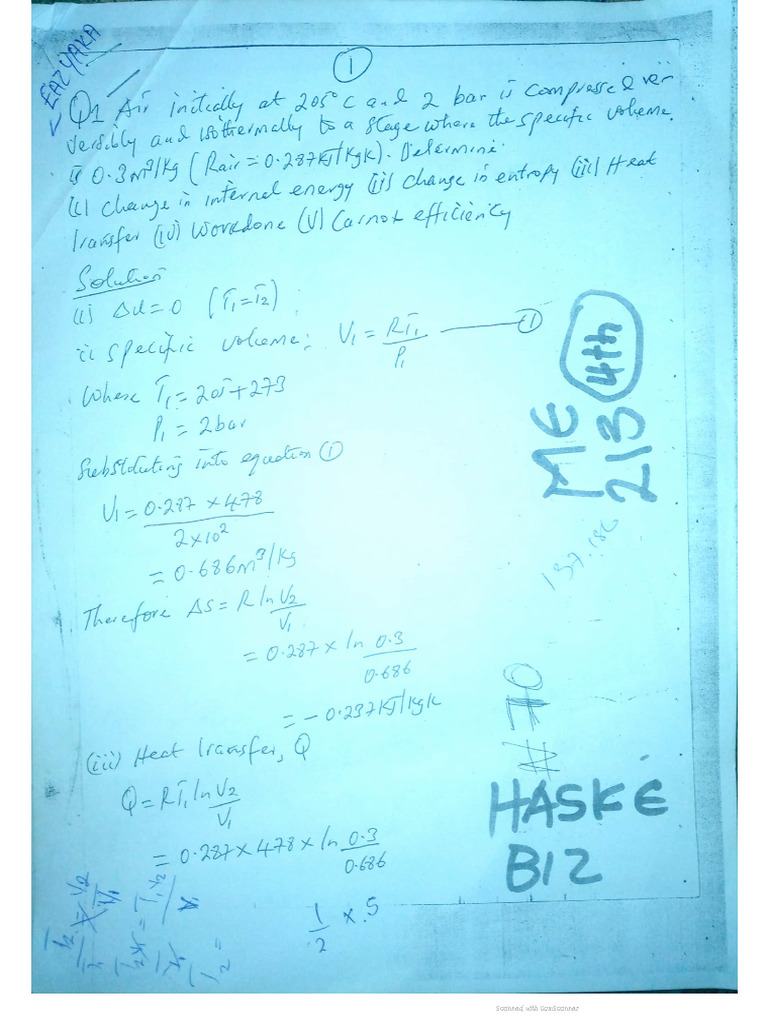 1
EAZYAKA
Q1 Air initially at 205°C and 2 bar is compressed rever
versibly and isothermally to a stage where the specific volume
is 0.3m³/kg (Rair = 0.287KJ/kgK). Determine:
(i) change in internal energy (ii) change in entropy (iii) Heat
transfer (iv) workdone (V) Carnot efficiency
Solution
(i) Δu=0 (T₁=T₂)
ii specific volume; V₁ = RT₁/P₁ ——— (1)
Where T₁ = 205+273
P₁ = 2bar
Substituting into equation (1)
V₁ = 0.287 × 478 / 2×10²
= 0.686m³/kg
Therefore ΔS = R ln V₂/V₁
= 0.287 × ln 0.3/0.686
= - 0.237KJ/kgK
(iii) Heat transfer, Q
Q = RT₁ ln V₂/V₁
= 0.287 × 478 × ln 0.3/0.686
1/2 × .5
ME
213
4th
137.186
₦70
HASKE
BIZ
Scanned with CamScanner